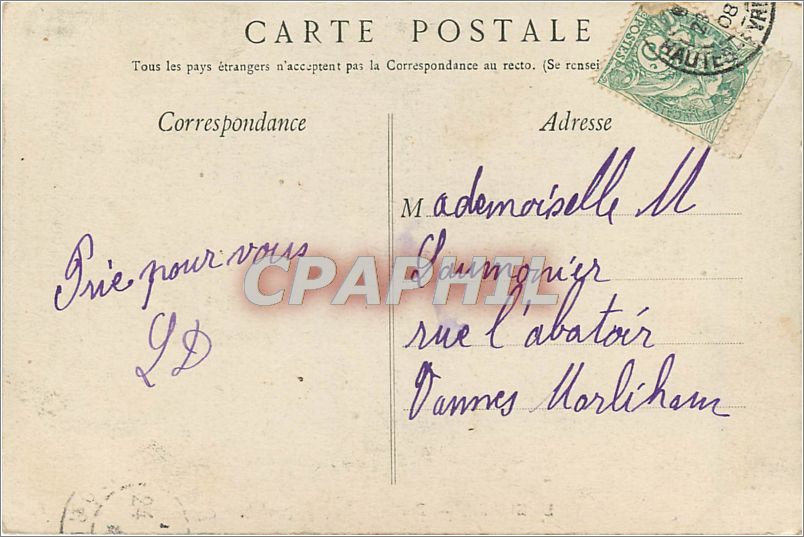 CARTE POSTALE
Tous les pays étrangers n'acceptent pas la Correspondance au recto. (Se rensei
Correspondance
Adresse
Prie pour vous
LD
Mademoiselle M
Laumonier
rue l'abatoir
Vannes Morliham
CPAPHIL
POSTES
HAUTES
08
24